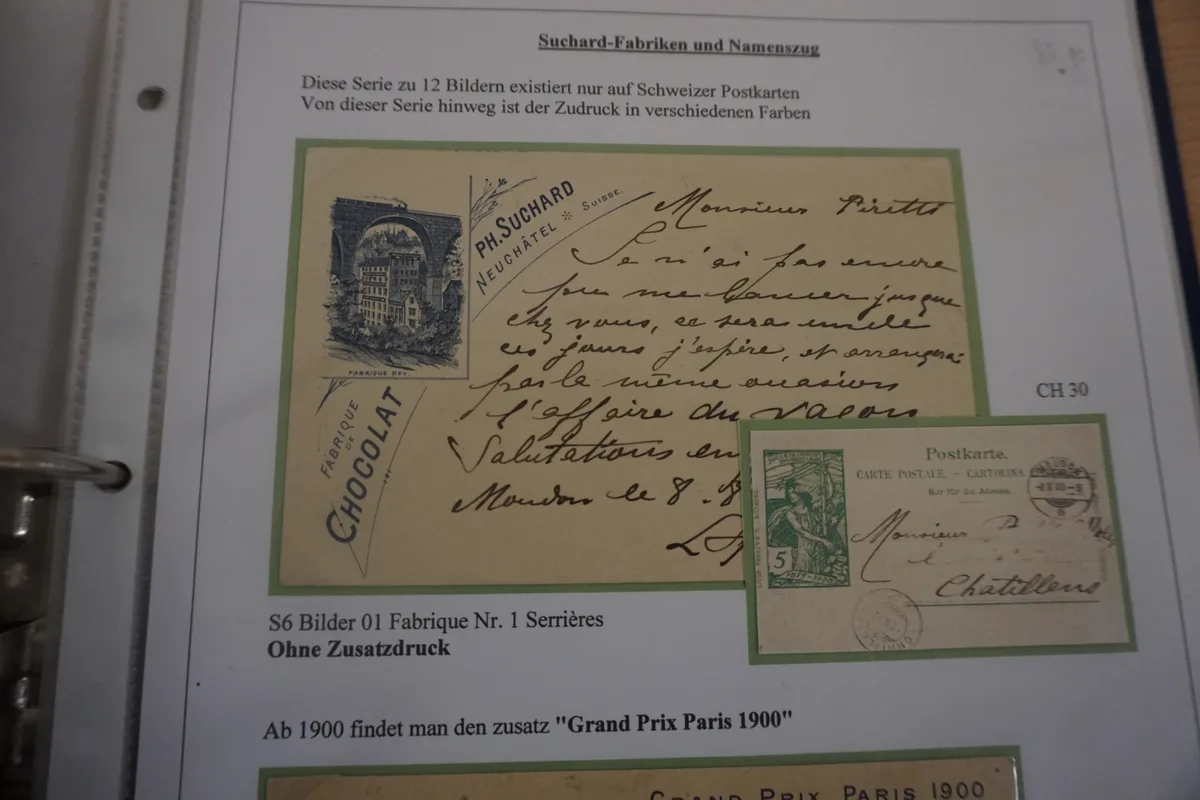 Suchard-Fabriken und Namenszug
Diese Serie zu 12 Bildern existiert nur auf Schweizer Postkarten
Von dieser Serie hinweg ist der Zudruck in verschiedenen Farben
PH. SUCHARD
NEUCHÂTEL * SUISSE.
FABRIQUE No1.
FABRIQUE
DE
CHOCOLAT
Monsieur Piretti
Je n'ai pas encore
pu me lancer jusque
chez vous, ce sera un de
ces jours j'espère, et arrangerai
par la même occasion
l'affaire du vacon
Salutations em
Moudon le 8
CH 30
Postkarte.
CARTE POSTALE. – CARTOLINA
Nur für die Adresse.
5
Monsieur
Chatillens
S6 Bilder 01 Fabrique Nr. 1 Serrières
Ohne Zusatzdruck
Ab 1900 findet man den zusatz "Grand Prix Paris 1900"
GRAND PRIX PARIS 1900